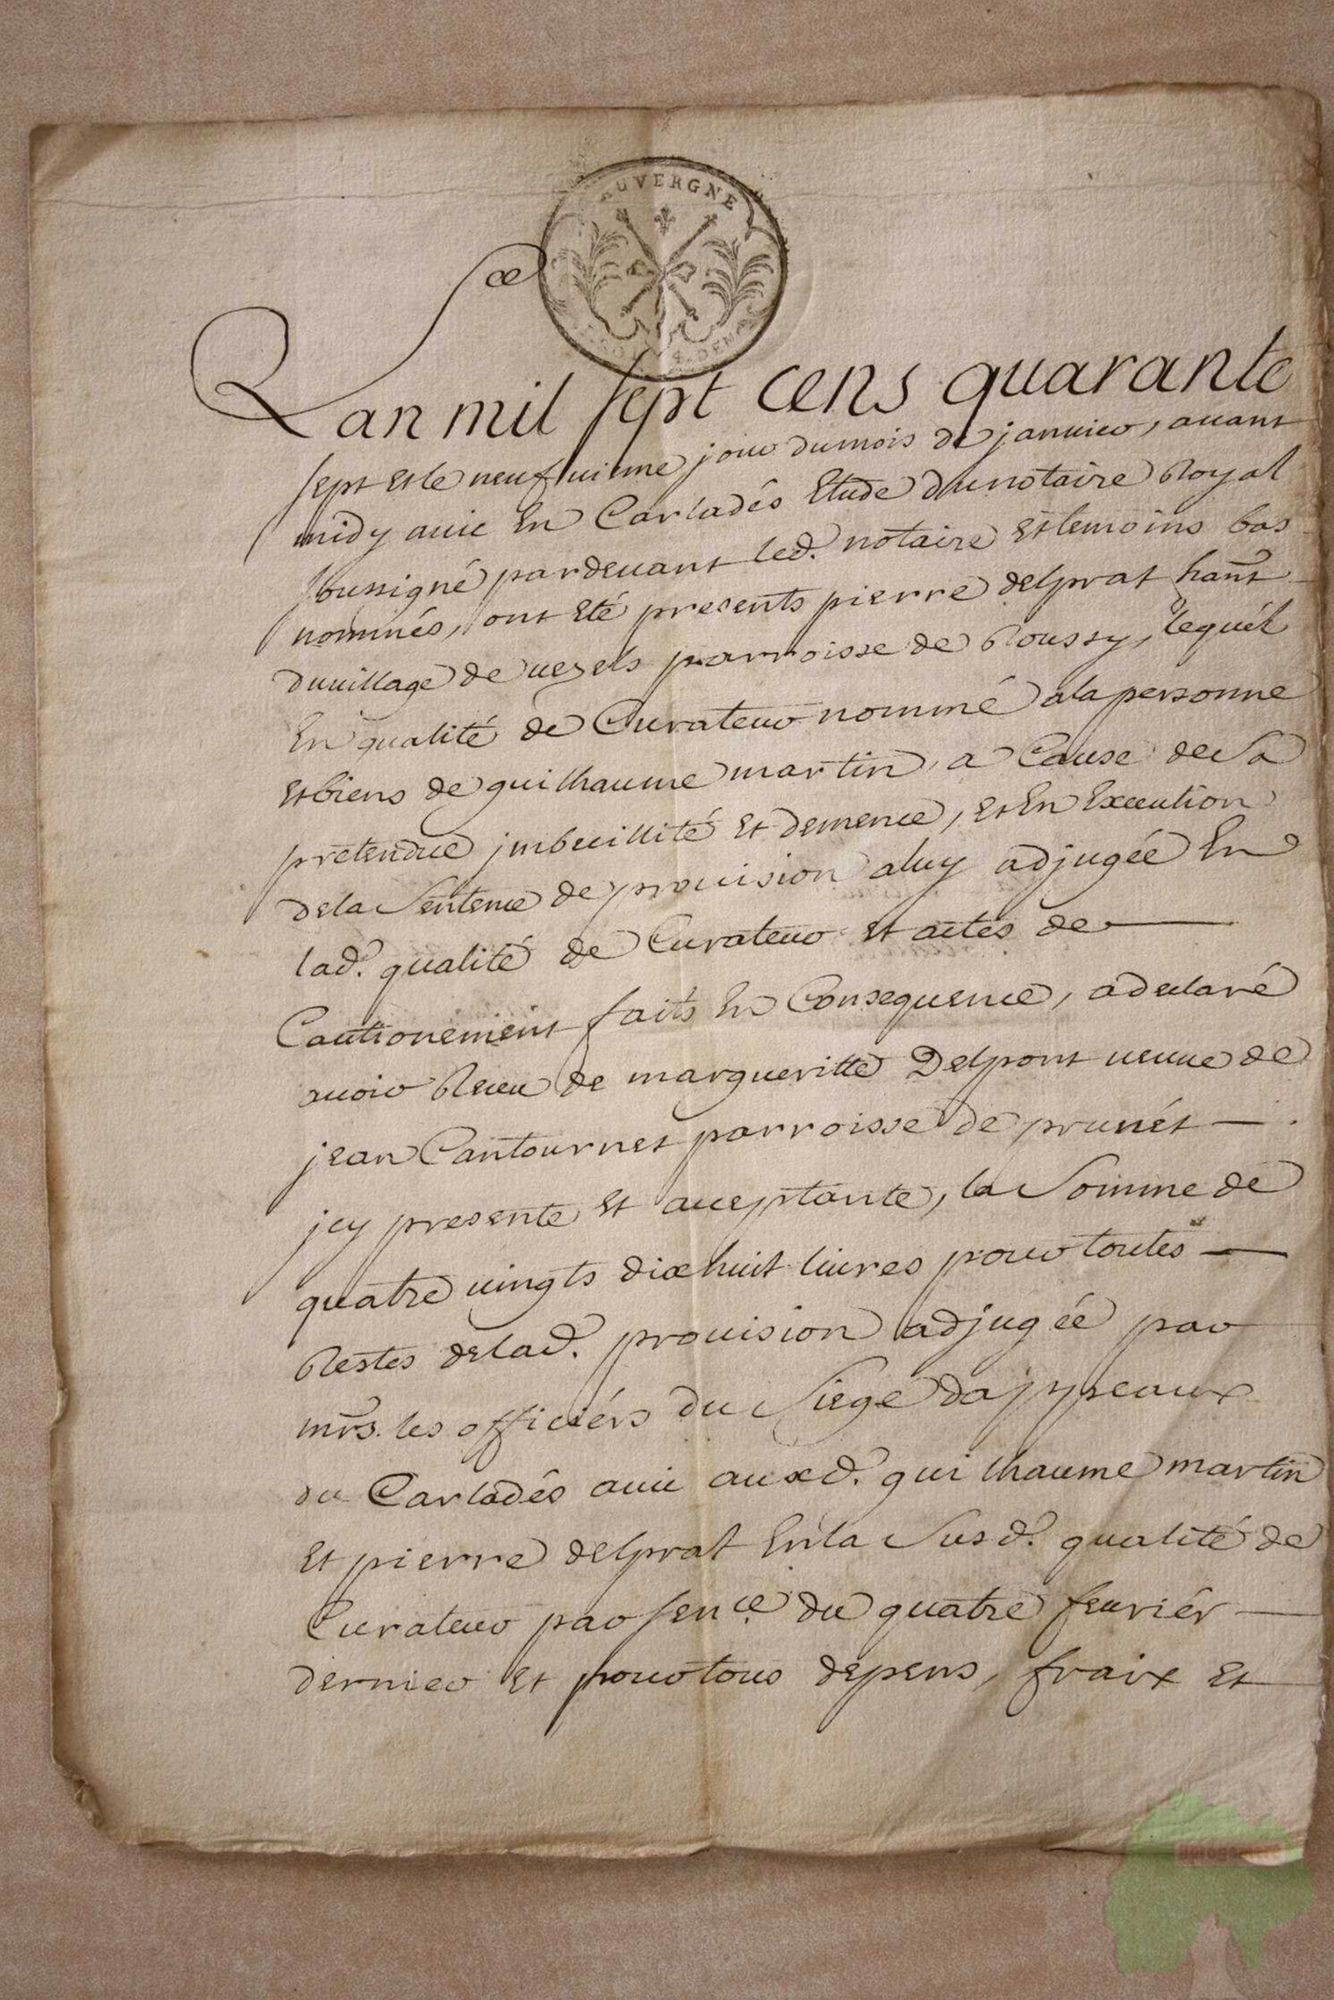 AUVERGNE
Lan mil sept cens quarante
sept et le neufvieme jour du mois de janvier, avant
midy a vic en Carladés Etude du notaire Royal
soussigné pardevant led. notaire et temoins bas
nommés, ont eté presents pierre delprat hant
du village de vezels parroisse de Roussy, lequél
En qualité de Curateur nommé ala personne
et biens de guilhaume martin, a Cause de sa
pretendue jmbecillité et demence, et En Execution
dela sentence de provision aluy adjugée En
lad. qualité de Curateur et actes de
Cautionement faits En Consequence, a declaré
avoir Receu de margueritte Delpont veuve de
jean Cantournet parroisse de prunét
jcy presente et acceptante, la somme de
quatre vingts dixhuit livres pour toutes
Restes delad. provision adjugée par
mrs. les officiérs du siege dappeaux
du Carladés a vic auxd. guilhaume martin
et pierre delprat En la susd. qualité de
Curateur par sence. du quatre fevriér
dernier et pour tous depens, fraix et